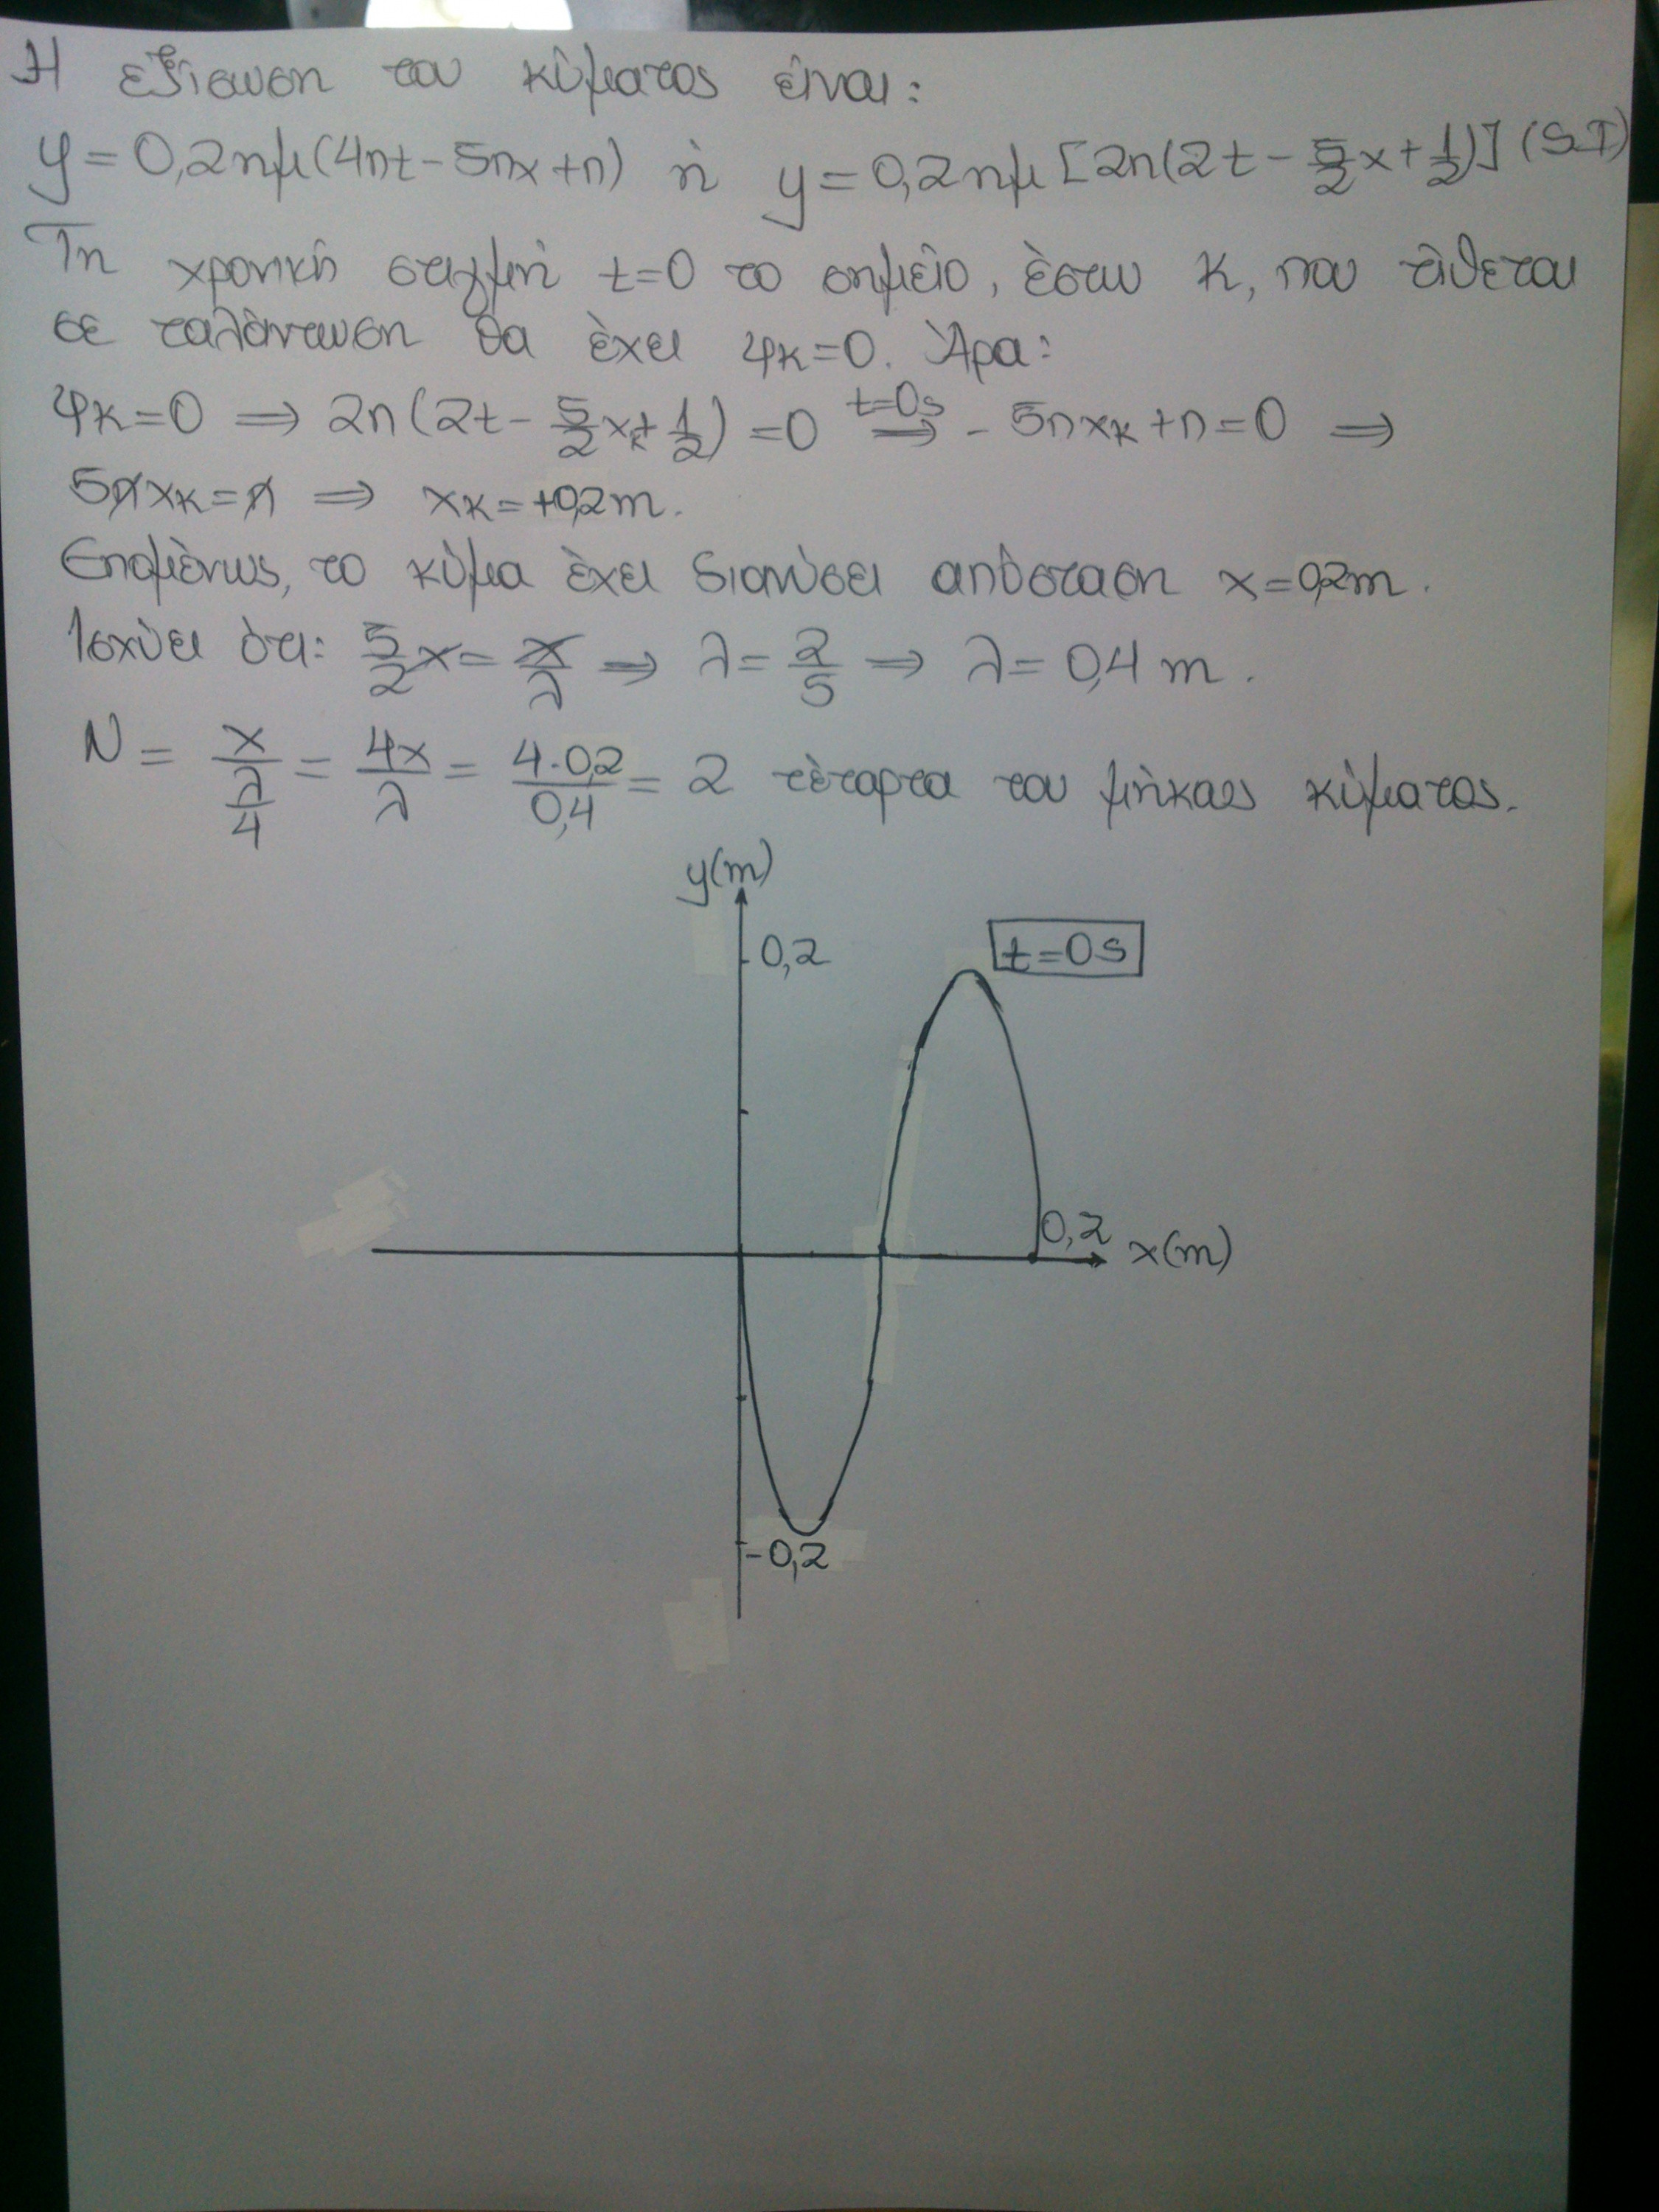 Η εξίσωση του κύματος είναι:
y=0,2ημ(4πt-5πx+π) ή y=0,2ημ[2π(2t-5/2x+1/2)] (S.I)
Τη χρονική στιγμή t=0 το σημείο, έστω Κ, που τίθεται
σε ταλάντωση θα έχει φκ=0. Άρα:
φκ=0 ⇒ 2π(2t-5/2xκ+1/2)=0 t=0s⇒ -5πxκ+π=0 ⇒
5πxκ=π ⇒ xκ=+0,2m.
Επομένως, το κύμα έχει διανύσει απόσταση x=0,2m.
Ισχύει ότι: 5/2x=x/λ ⇒ λ=2/5 ⇒ λ=0,4m.
N=x/(λ/4)=4x/λ=4·0,2/0,4=2 τέταρτα του μήκους κύματος.
y(m)
0,2
t=0s
0,2
x(m)
-0,2